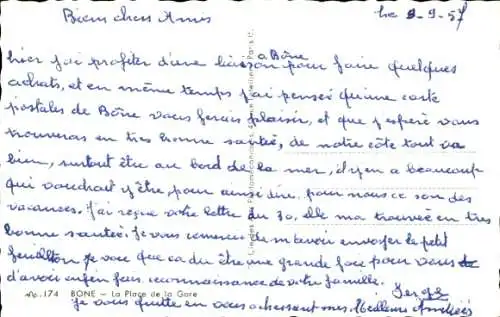 Biens chers Amis
Le 9-9-57
hier j'ai profiter d'une liaison a Bône pour faire quelques
achats, et en même temps j'ai penser qu'une carte
postales de Bône vous ferais plaisir, et que j'espère vous
trouveras en très bonne santée, de notre côte tout va
bien, surtout être au bord de la mer, il y en a beaucoup
qui voudrait y être pour ainsi dire pour nous ce son des
vacances. J'ai reçue votre lettre du 30, elle ma trouvée en très
bonne santée. Je vous remercie de m'avoir envoyer le petit
feuilleton je voie que ca du être une grande joie pour vous
d'avoir enfin faire reconnaissance de votre famille.
Serge
No. 174 BONE - La Place de la Gare
Je vous quitte en vous adressant mes Meilleurs Amitiés